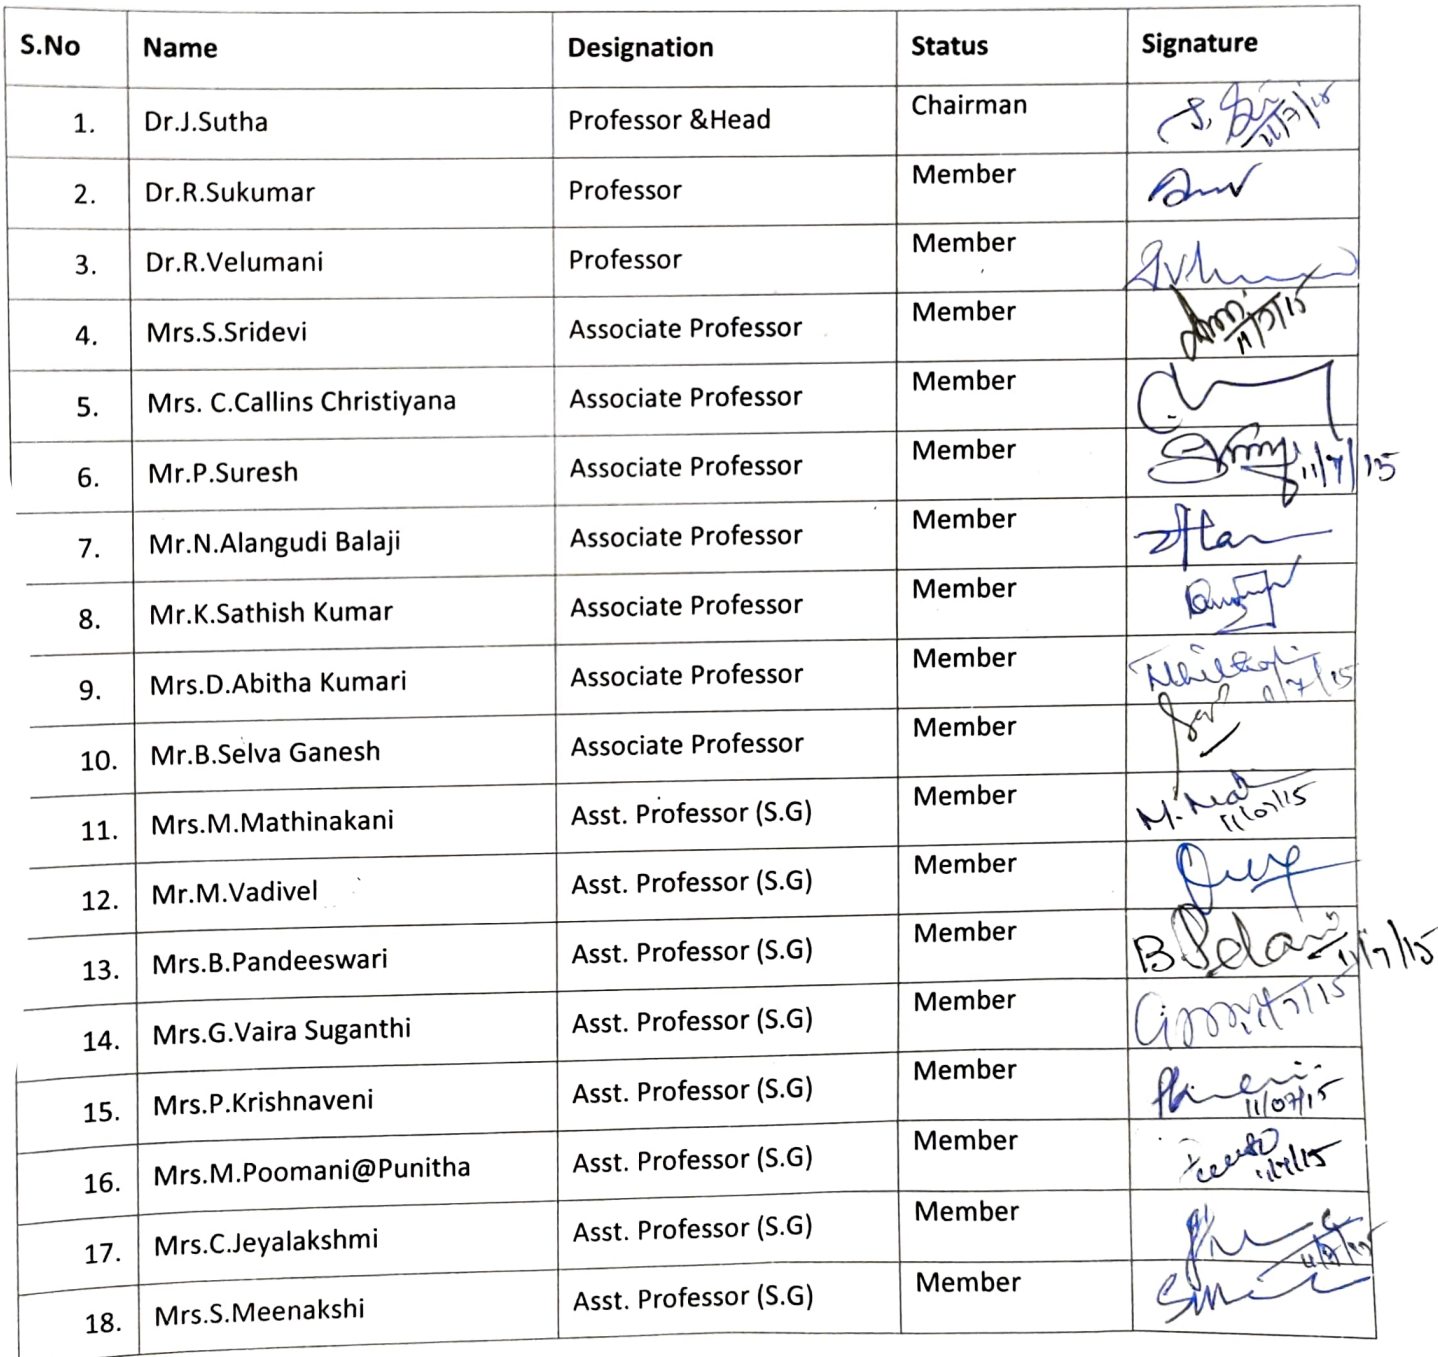 S.No Name Designation Status Signature
1. Dr.J.Sutha Professor &Head Chairman 11/7/15
2. Dr.R.Sukumar Professor Member
3. Dr.R.Velumani Professor Member
4. Mrs.S.Sridevi Associate Professor Member 11/7/15
5. Mrs. C.Callins Christiyana Associate Professor Member
6. Mr.P.Suresh Associate Professor Member 11/7/15
7. Mr.N.Alangudi Balaji Associate Professor Member
8. Mr.K.Sathish Kumar Associate Professor Member
9. Mrs.D.Abitha Kumari Associate Professor Member 11/7/15
10. Mr.B.Selva Ganesh Associate Professor Member
11. Mrs.M.Mathinakani Asst. Professor (S.G) Member 11/07/15
12. Mr.M.Vadivel Asst. Professor (S.G) Member
13. Mrs.B.Pandeeswari Asst. Professor (S.G) Member 11/7/15
14. Mrs.G.Vaira Suganthi Asst. Professor (S.G) Member 11/7/15
15. Mrs.P.Krishnaveni Asst. Professor (S.G) Member 11/07/15
16. Mrs.M.Poomani@Punitha Asst. Professor (S.G) Member 11/7/15
17. Mrs.C.Jeyalakshmi Asst. Professor (S.G) Member 11/7/15
18. Mrs.S.Meenakshi Asst. Professor (S.G) Member